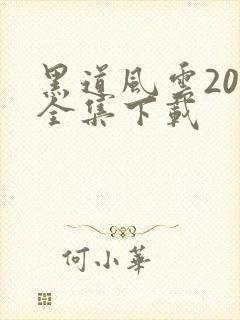 黑道風雲20
全集下載
何小華